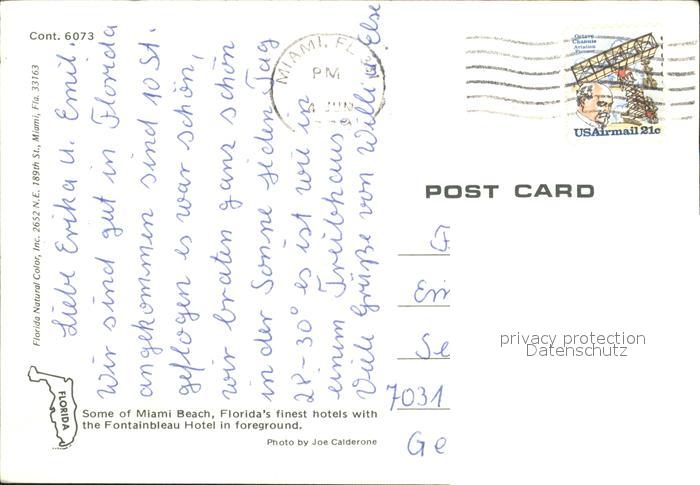 Cont. 6073
Florida Natural Color, Inc. 2652 N.E. 189th St., Miami, Fla. 33163
Liebe Erika u. Emil.
Wir sind gut in Florida
angekommen sind 10 St.
geflogen es war schön,
wir braten ganz schön
in der Sonne jeden Tag
28-30° es ist wie in
einem Treibhaus
Viele Grüße von Willi u. Else
FLORIDA
Some of Miami Beach, Florida's finest hotels with
the Fontainbleau Hotel in foreground.
Photo by Joe Calderone
MIAMI, FL
PM
JUN
Octave
Chanute
Aviation
Pioneer
USAirmail 21c
POST CARD
Se
7031
Ge
privacy protection
Datenschutz